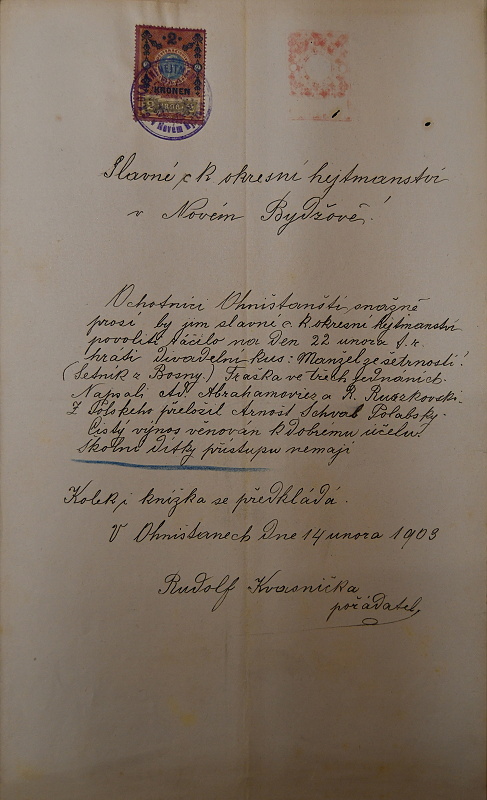 2
HEJTM
KRONEN
1898
Novém Byd
Slavné c k okresní hejtmanství
v Novém Bydžově!
Ochotníci Ohništanští, snažně
prosí by jim slavné c. k. okresní hejtmanství
povoliti ráčilo na den 22 unora t. r.
hrati divadelní kus: Manžel ze šetrností!
(Setník z Bosny.) Fraška ve třech jednaních.
Napsali Ad. Abrahamovicz a R. Ruszkovski.
Z Polského přeložil Arnošt Schvab Polabsky.
Čistý výnos věnován k dobrému účelu.
Školní dítky přístupu nemají
Kolek i knížka se předkládá.
V Ohništanech dne 14 unora 1903
Rudolf Kvasnička
pořádatel